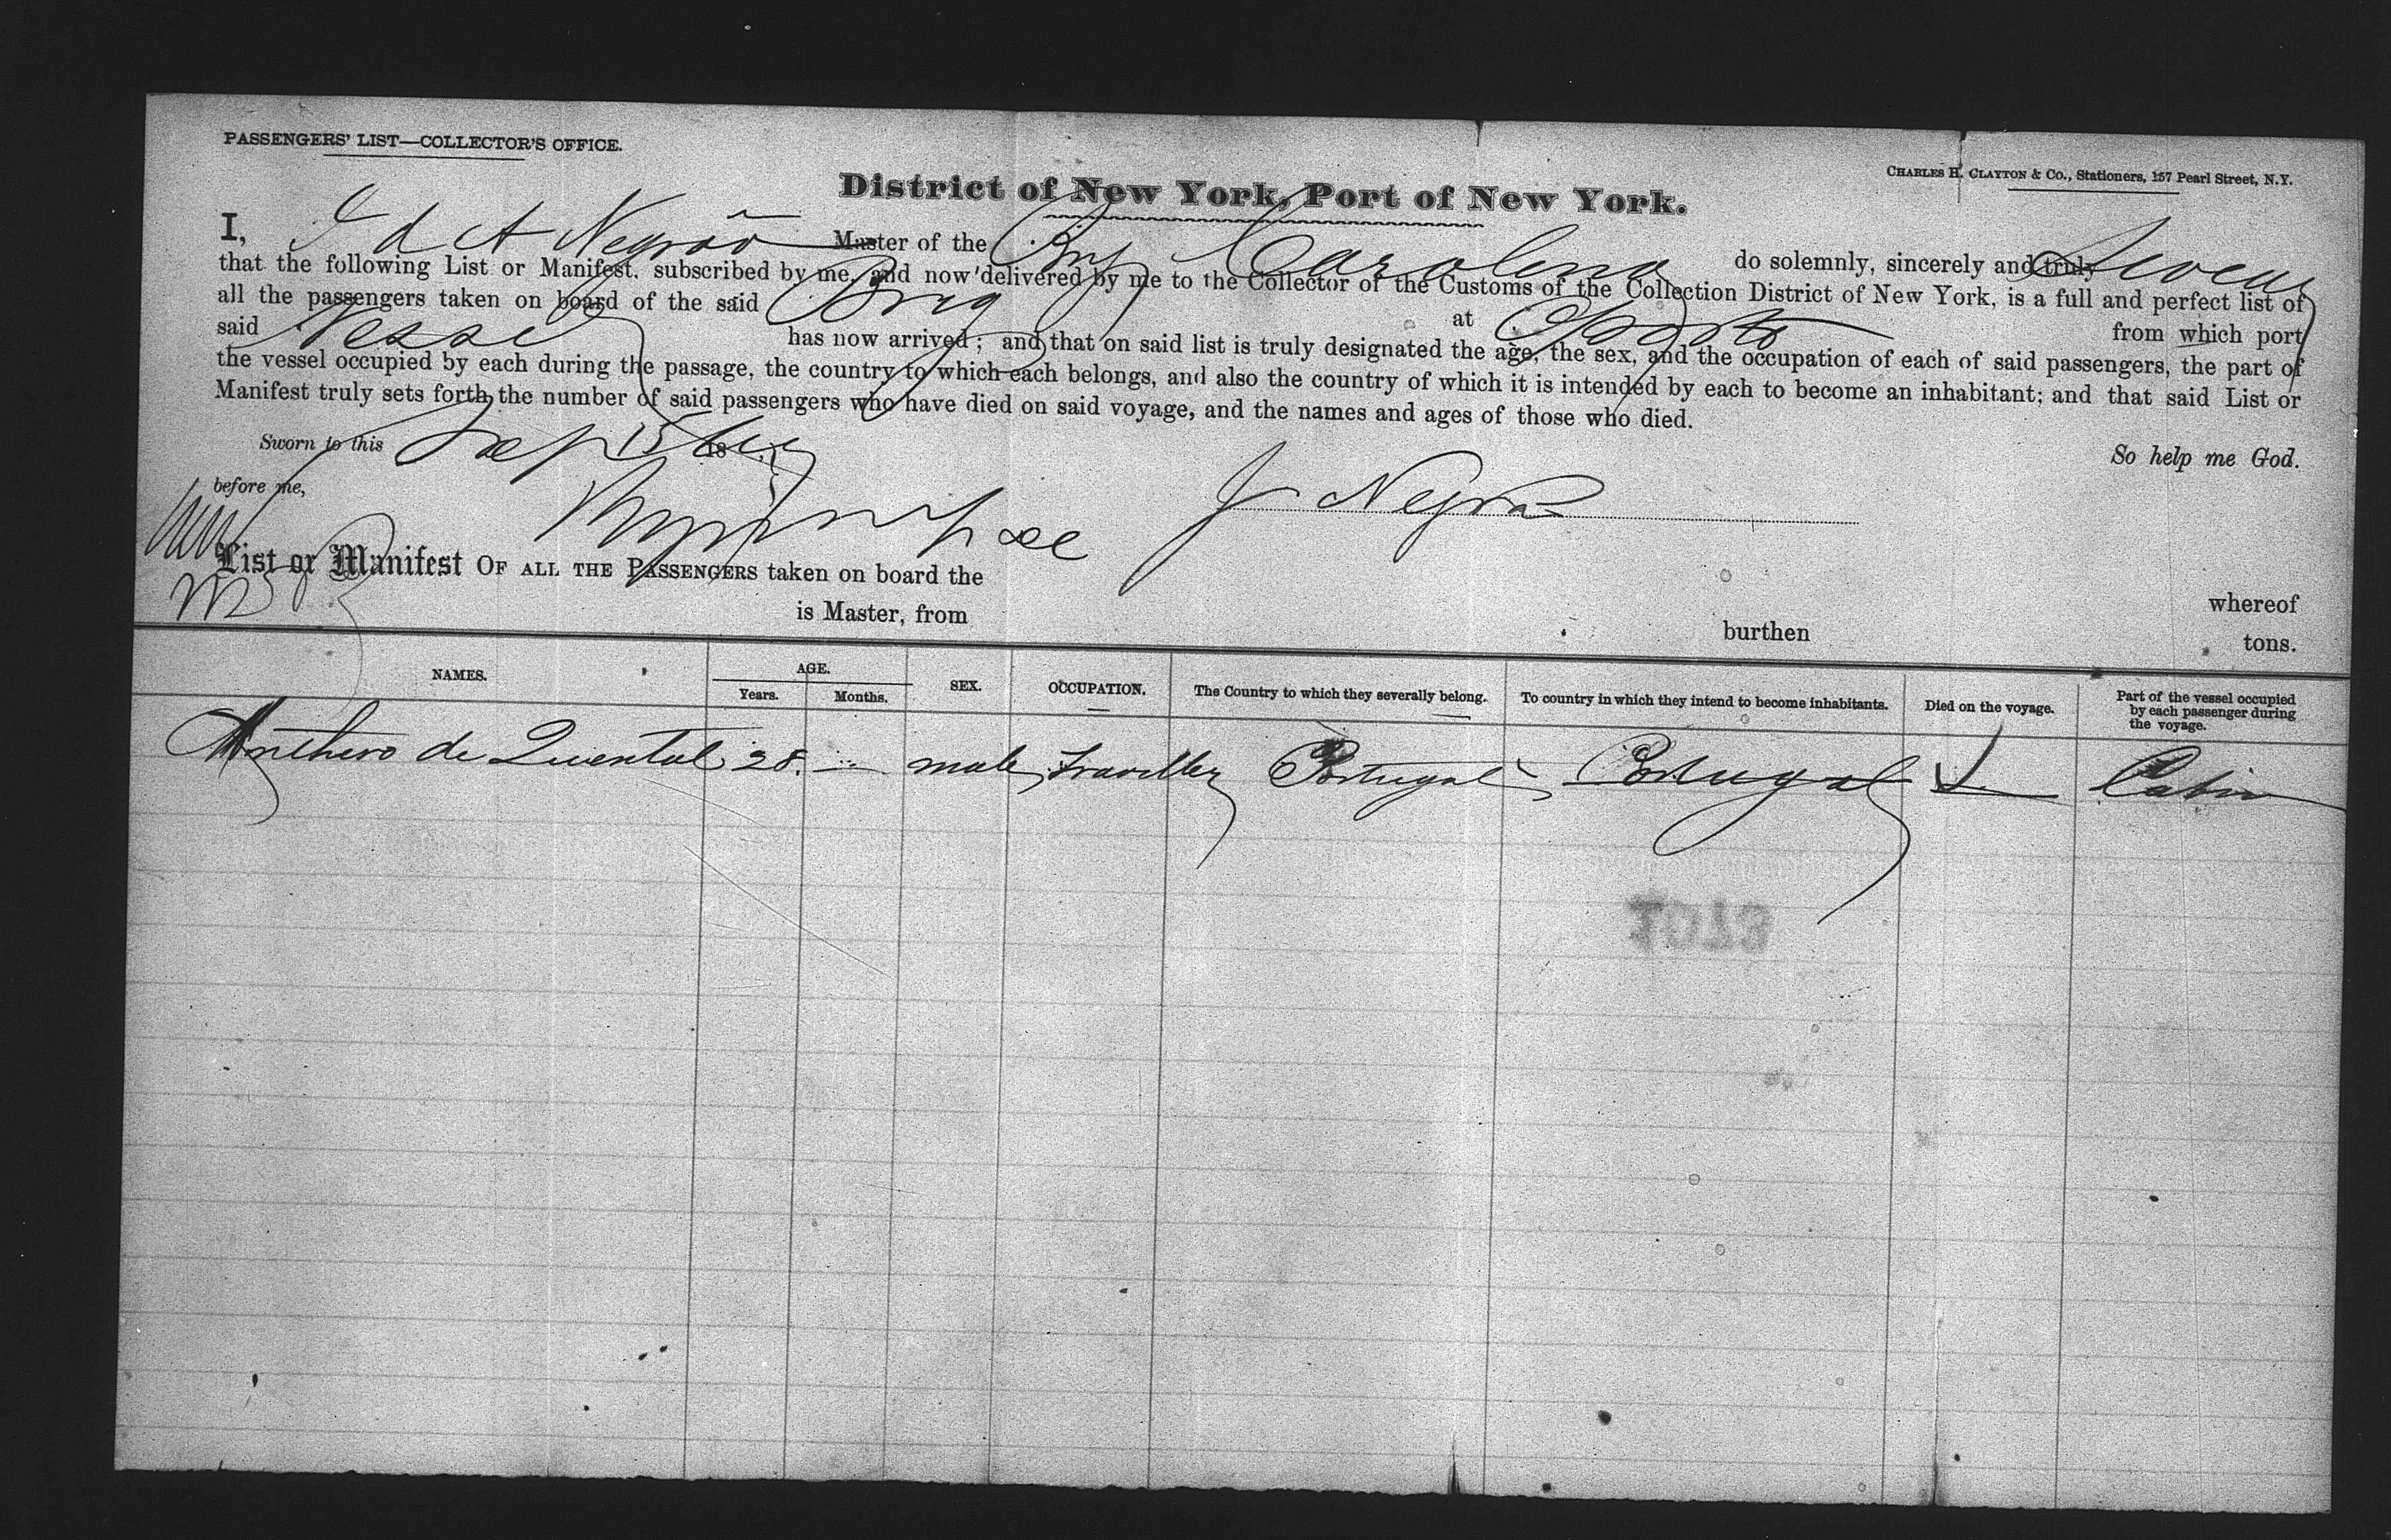 PASSENGERS' LIST—COLLECTOR'S OFFICE.
CHARLES H. CLAYTON & Co., Stationers, 157 Pearl Street, N.Y.
District of New York, Port of New York.
I, J d A Negrão Master of the Brig Carolina do solemnly, sincerely and truly swear
that the following List or Manifest, subscribed by me, and now delivered by me to the Collector of the Customs of the Collection District of New York, is a full and perfect list of
all the passengers taken on board of the said Brig at Oporto from which port
said Vessel has now arrived; and that on said list is truly designated the age, the sex, and the occupation of each of said passengers, the part of
the vessel occupied by each during the passage, the country to which each belongs, and also the country of which it is intended by each to become an inhabitant; and that said List or
Manifest truly sets forth the number of said passengers who have died on said voyage, and the names and ages of those who died.
Sworn to this Sep 15 18 So help me God.
before me, J Negrão
List or Manifest OF ALL THE PASSENGERS taken on board the whereof
is Master, from burthen tons.
NAMES. AGE. Years. Months. SEX. OCCUPATION. The Country to which they severally belong. To country in which they intend to become inhabitants. Died on the voyage. Part of the vessel occupied by each passenger during the voyage.
Anthero de Quental 28. male traveller Portugal Portugal Cabin